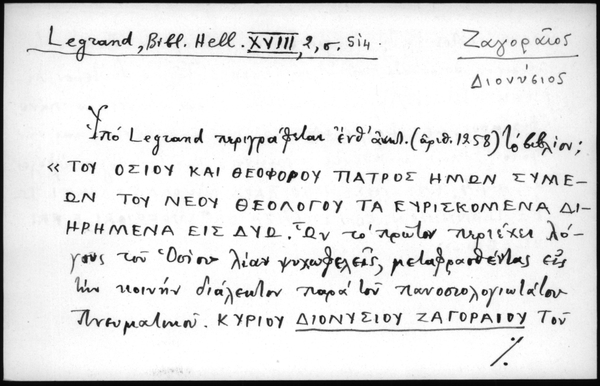 Legrand, Bibl. Hell. XVIII, 2, σ. 514.
Ζαγοραῖος
Διονύσιος
Ὑπό Legrand περιγράφεται ἐνθ' ἀνωτ. (ἀριθ. 1258) τὸ βιβλίον;
« ΤΟΥ ΟΣΙΟΥ ΚΑΙ ΘΕΟΦΟΡΟΥ ΠΑΤΡΟΣ ΗΜΩΝ ΣΥΜΕ-
ΩΝ ΤΟΥ ΝΕΟΥ ΘΕΟΛΟΓΟΥ ΤΑ ΕΥΡΙΣΚΟΜΕΝΑ ΔΙ-
ΗΡΗΜΕΝΑ ΕΙΣ ΔΥΩ. Ὧν τὸ πρῶτον περιέχει λό-
γους τοῦ Ὁσίου λίαν ψυχωφελεῖς, μεταφρασθέντας εἰς
τὴν κοινὴν διάλεκτον παρὰ τοῦ πανοσιολογιωτάτου
Πνευματικοῦ. ΚΥΡΙΟΥ ΔΙΟΝΥΣΙΟΥ ΖΑΓΟΡΑΙΟΥ Τοῦ
⁒